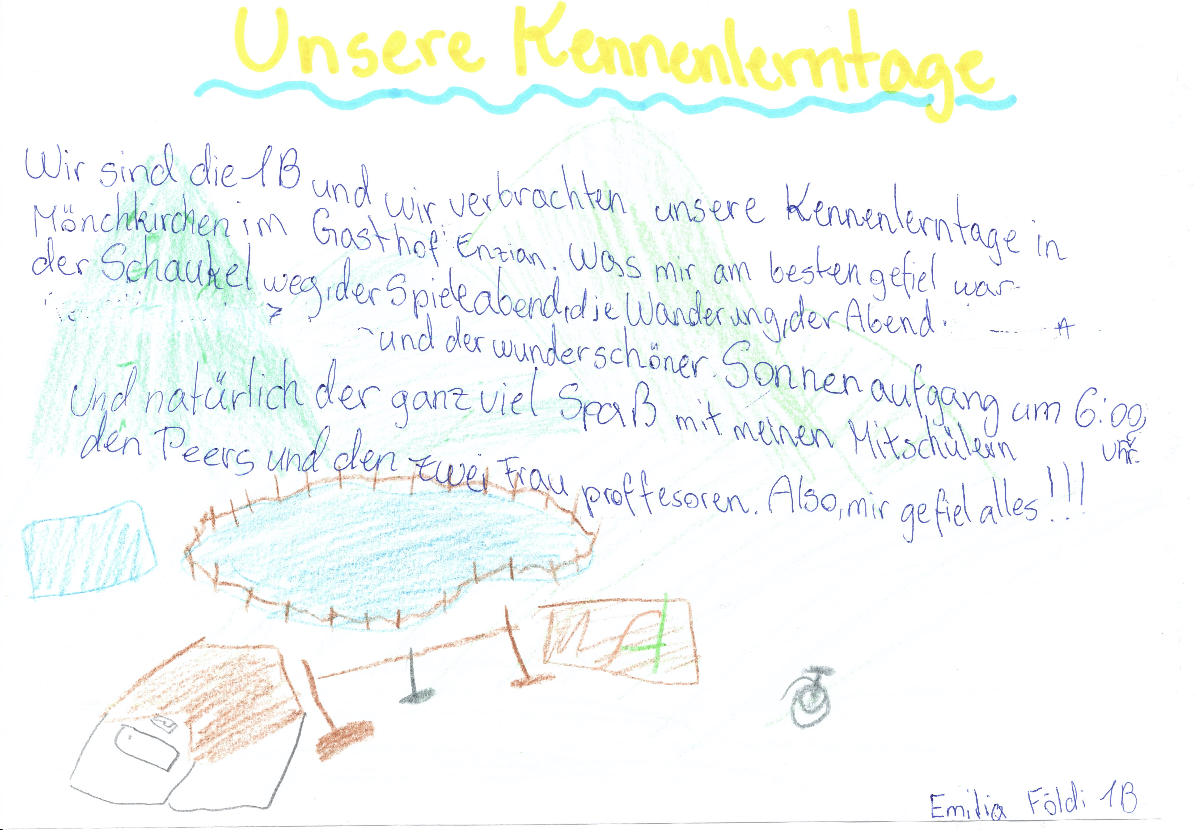 Unsere Kennenlerntage
Wir sind die 1B und wir verbrachten unsere Kennenlerntage in
Mönchkirchen im Gasthof Enzian. Was mir am besten gefiel war
der Schaukelweg, der Spieleabend, die Wanderung, der Abend
und der wunderschöner Sonnenaufgang um 6:00
Uhr.
Und natürlich der ganz viel Spaß mit meinen Mitschülern
den Peers und den zwei Frau proffesoren. Also, mir gefiel alles!!!
Emilia Földi 1B